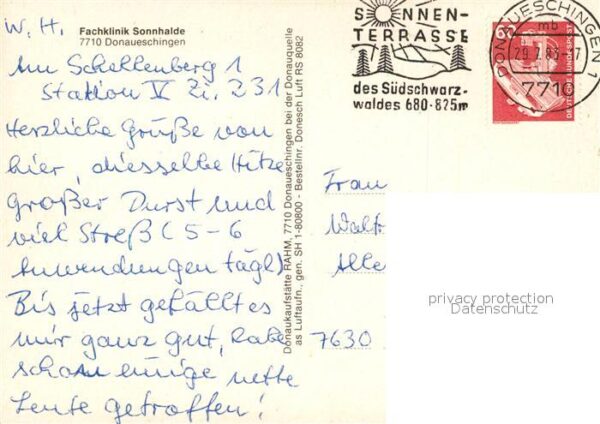 W. H.
Fachklinik Sonnhalde
7710 Donaueschingen
Am Schellenberg 1
Station V Zi. 231
Herzliche Grüße von
hier, diesselbe Hitze
großer Durst und
viel Streß (5-6
Anwendungen tägl)
Bis jetzt gefällt es
mir ganz gut, habe
schon einige nette
Leute getroffen!
Donaukaufstätte RAHM, 7710 Donaueschingen bei der Donauquelle
as Luftaufn., gen. SH 1-80800 - Bestellnr. Donesch Luft RS 8082
SONNEN-
TERRASSE
des Südschwarz-
waldes 680-825m
DONAUESCHINGEN 1
mb
7710
DEUTSCHE BUNDESPOST
Frau
Waltr
Alle
7630
privacy protection
Datenschutz